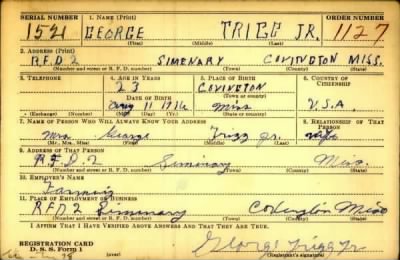 SERIAL NUMBER 1. NAME (Print) ORDER NUMBER
1521 GEORGE TRIGG JR. 1127
(First) (Middle) (Last)
2. ADDRESS (Print)
R.F.D 2 SIMENARY COVINGTON MISS.
(Number and street or R. F. D. number) (Town) (County) (State)
3. TELEPHONE 4. AGE IN YEARS 5. PLACE OF BIRTH 6. COUNTRY OF CITIZENSHIP
23 COVINGTON
DATE OF BIRTH (Town or county)
Aug 11 1916 Miss U.S.A.
(Exchange) (Number) (Mo.) (Day) (Yr.) (State or country)
7. NAME OF PERSON WHO WILL ALWAYS KNOW YOUR ADDRESS 8. RELATIONSHIP OF THAT PERSON
Mrs. George Trigg Jr. wife
(Mr., Mrs., Miss) (First) (Middle) (Last)
9. ADDRESS OF THAT PERSON
R.F.D.2 Seminary Miss.
(Number and street or R. F. D. number) (Town) (County) (State)
10. EMPLOYER'S NAME
Farming
11. PLACE OF EMPLOYMENT OR BUSINESS
R.F.D 2 Covington Miss
(Number and street or R. F. D. number) (Town) (County) (State)
I AFFIRM THAT I HAVE VERIFIED ABOVE ANSWERS AND THAT THEY ARE TRUE.
REGISTRATION CARD
D. S. S. Form 1 George Trigg Jr
(Registrant's signature)